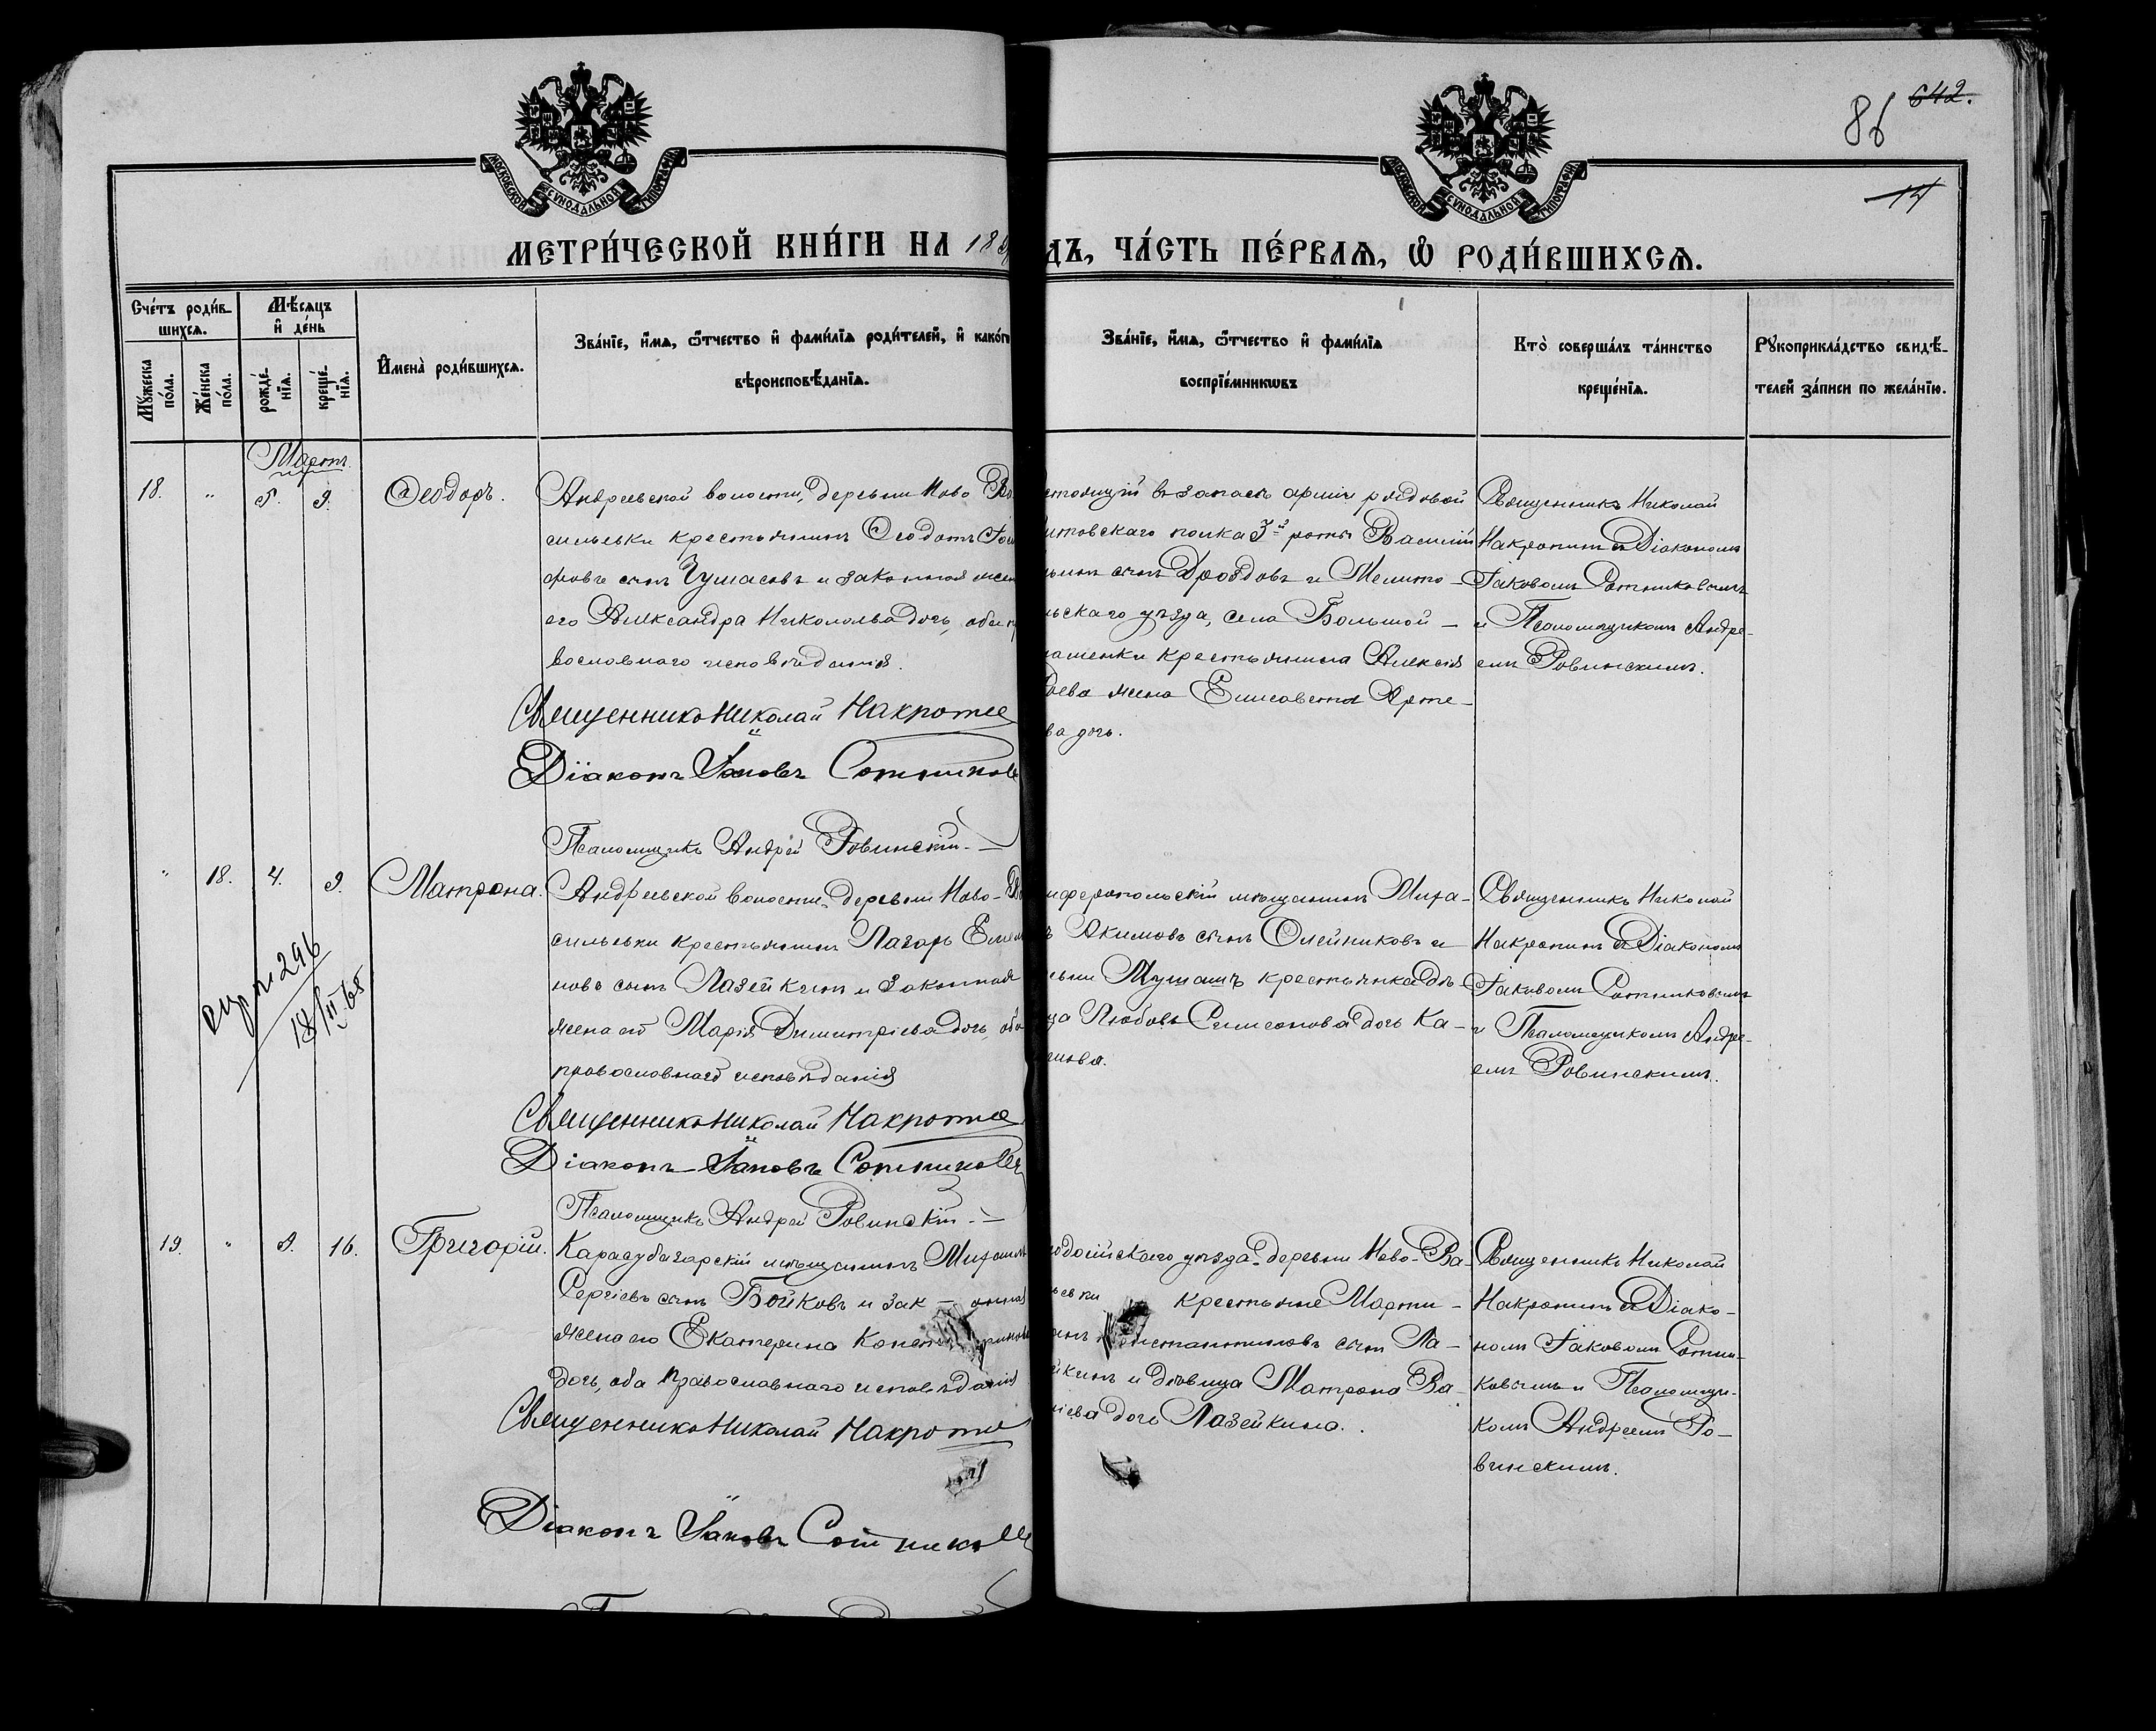 642.
86
14
МОСКОВСКОЙ СѴНОДАЛЬНОЙ ТИПОГРАФІИ
МОСКОВСКОЙ СѴНОДАЛЬНОЙ ТИПОГРАФІИ
МЕТРИ́ЧЕСКОЙ КНИ́ГИ НА 18
ДЪ, ЧА́СТЬ ПЕ́РВАѦ, Ѽ РОДИ́ВШИХСѦ.
Сче́тъ роди́в-
шихсѧ.
Мꙋ́жеска по́ла.
Же́нска по́ла.
Мѣ́сѧцъ
и҆ де́нь
рожде́-
нїѧ.
креще́-
нїѧ.
И҆мена̀ роди́вшихсѧ.
Зва́нїе, и҆́мѧ, ѻ҆́тчество и҆ фами́лїѧ роди́телей, и҆ како́гѡ
вѣроисповѣ́данїѧ.
Зва́нїе, и҆́мѧ, ѻ҆́тчество и҆ фами́лїѧ
воспрїе́мникѡвъ
Кто̀ соверша́лъ та́инство
креще́нїѧ.
Рꙋкоприкла́дство свидѣ́-
телей за́писи по жела́нїю.
Мартъ
18. " 5. 9. Ѳеодоръ.
Андреевской волости, деревни Ново Ва
сильевки крестьянинъ Ѳеодотъ
сынъ Чумасовъ и законная жен
его Александра Николаева дочь, оба пр
вославнаго исповѣданія.
Священникъ Николай Накропи
Діаконъ Іаковъ Сотников
Псаломщикъ Андрей Ровинскій.
стоящій въ запасѣ арміи рядовой
итовскаго полка 3й роты Василій
сынъ Дроздовъ и Мелито-
льскаго уѣзда, села Большой-
крестьянина Алексія
жена Елисавета Арте-
ва дочь.
Священникъ Николай
Накропинъ съ Діакономъ
Іаковомъ Сотниковымъ
и Псаломщикомъ Андре-
емъ Ровинскимъ.
" 18. 4. 9. Матрона.
№ 296
18/II 65
Андреевской волости, деревни Ново-Ва
сильевки крестьянинъ Лазарь Емелья
новъ сынъ Лазейкинъ и законная
жена его Марія Димитріева дочь, оба
православнаго исповѣданія
Священникъ Николай Накропи
Діаконъ Іаковъ Сотников
Псаломщикъ Андрей Ровинскій.
имферопольскій мѣщанинъ Миха-
ъ Акимовъ сынъ Олейниковъ и
крестьянка дѣ-
ца Любовь Симеонова дочь Ка-
Священникъ Николай
Накропинъ съ Діакономъ
Іаковомъ Сотниковымъ
и Псаломщикомъ Андре-
емъ Ровинскимъ.
19. " 9. 16. Григорій.
Карасубазарскій мѣщанинъ Михаилъ
Сергіевъ сынъ Бойковъ и зак- онная
жена его Екатерина
дочь, оба православнаго исповѣданія
Священникъ Николай Накропи
Діаконъ Іаковъ Сотников
одосійскаго уѣзда, деревни Ново-Ва-
евки крестьяне Марти-
сынъ Ла-
йкинъ и дѣвица Матрона Ва-
іева дочь Лазейкина.
Священникъ Николай
Накропинъ съ Діако-
номъ Іаковомъ Сотни-
ковымъ и Псаломщи-
комъ Андреемъ Ро-
винскимъ.